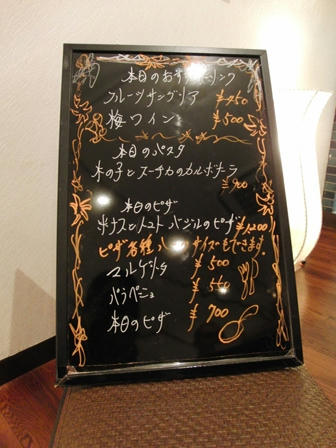 本日のおすすめドリンク
フルーツサングリア ¥450
梅ワイン ¥500
本日のパスタ
木の子とスーチカのカルボナーラ
¥900
本日のピザ
米ナスとトマトバジルのピザ ¥1,200
ピザ各種ハーフサイズもできます。
マルゲリータ ¥500
パラペーニョ ¥550
本日のピザ ¥700